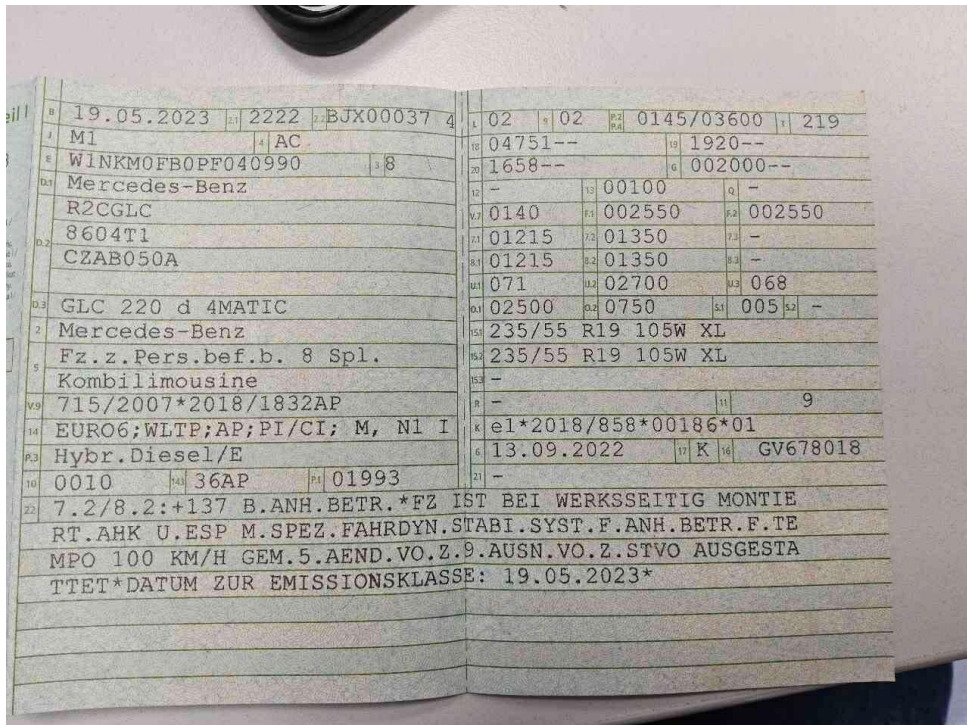 eil I
B 19.05.2023 2.1 2222 2.2 BJX00037 4
J M1 4 AC
E W1NKM0FB0PF040990 3 8
D.1 Mercedes-Benz
R2CGLC
D.2 8604T1
CZAB050A
D.3 GLC 220 d 4MATIC
2 Mercedes-Benz
5 Fz.z.Pers.bef.b. 8 Spl.
Kombilimousine
V.9 715/2007*2018/1832AP
14 EURO6;WLTP;AP;PI/CI; M, N1 I
P.3 Hybr.Diesel/E
10 0010 14.1 36AP P.1 01993
L 02 9 02 P.2 P.4 0145/03600 T 219
18 04751-- 19 1920--
20 1658-- G 002000--
12 - 13 00100 Q -
V.7 0140 F.1 002550 F.2 002550
7.1 01215 7.2 01350 7.3 -
8.1 01215 8.2 01350 8.3 -
U.1 071 U.2 02700 U.3 068
O.1 02500 O.2 0750 S.1 005 S.2 -
15.1 235/55 R19 105W XL
15.2 235/55 R19 105W XL
15.3 -
R - 11 9
K e1*2018/858*00186*01
6 13.09.2022 17 K 16 GV678018
21 -
22 7.2/8.2:+137 B.ANH.BETR.*FZ IST BEI WERKSSEITIG MONTIE
RT.AHK U.ESP M.SPEZ.FAHRDYN.STABI.SYST.F.ANH.BETR.F.TE
MPO 100 KM/H GEM.5.AEND.VO.Z.9.AUSN.VO.Z.STVO AUSGESTA
TTET*DATUM ZUR EMISSIONSKLASSE: 19.05.2023*